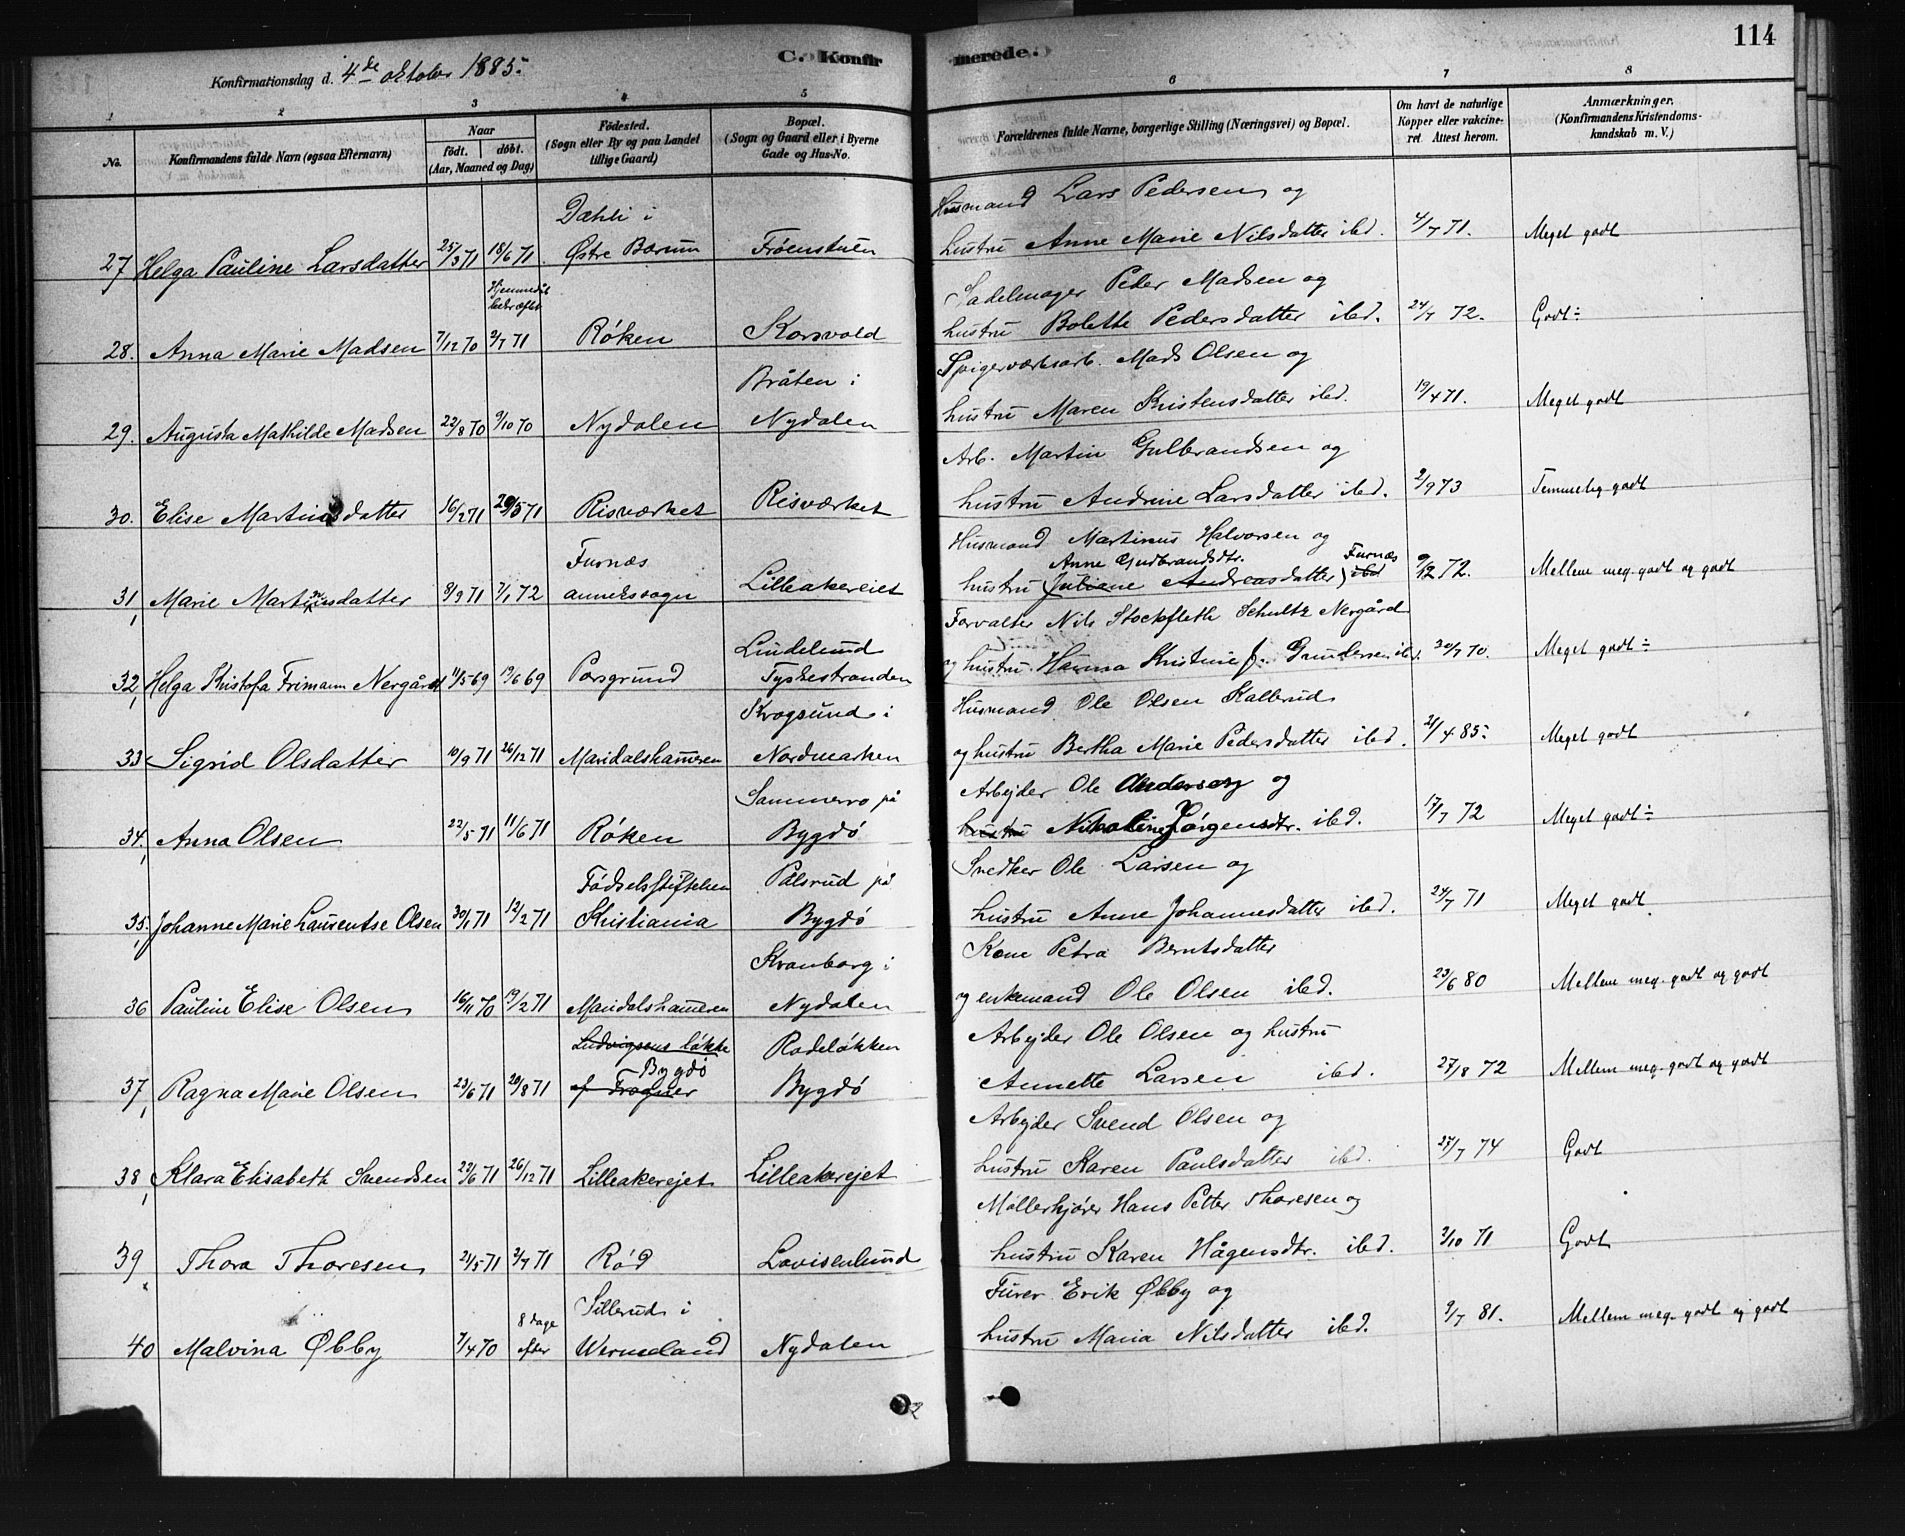 114
C. Konfirmerede.
Konfirmationsdag d. 4de oktober 1885.
1 2 3 4 5 6 7 8
No.
Konfirmandens fulde Navn (ogsaa Efternavn)
Naar
født. døbt.
(Aar, Maaned og Dag)
Fødested.
(Sogn eller By og paa Landet
tillige Gaard)
Bopæl.
(Sogn og Gaard eller i Byerne
Gade og Hus-No.
Forældrenes fulde Navne, borgerlige Stilling (Næringsvei) og Bopæl.
Om havt de naturlige
Kopper eller vakcineret
Attest herom.
Anmærkninger.
(Konfirmandens Kristendoms-
kundskab m. V.)
Dæhli i Husmand Lars Pedersen og
27 Helga Pauline Larsdatter 25/3 71 18/6 71. Østre Bærum Frøenstuen hustru Anne Marie Nilsdatter ibd. 4/7 71. Meget godt
Hjemmedåb
bekræftet
Sadelmager Peder Madsen og
28. Anna Marie Madsen 7/12 70 2/7 71 Røken Korsvold hustru Bolette Pedersdatter ibd. 24/7 72. Godt ÷
Bråten i Spigerværksarb. Mads Olsen og
29. Augusta Mathilde Madsen 22/8 70 9/10 70 Nydalen Nydalen hustru Maren Kristensdatter ibd. 19/4 71. Meget godt
Arb. Martin Gulbrandsen og
30. Elise Martinsdatter 16/2 71 29/5 71 Risværket Risværket hustru Andrine Larsdatter ibd. 2/9 73 Temmelig godt
Furnæs Husmand Martinus Halvorsen og
Anne Gudbrandsdtr. Furnæs
31, Marie Martinusdatter 8/9 71 7/1 72 annekssogn Lilleakereiet hustru (Juliane Andreasdatter) ibd 9/12 72. Mellem meg. godt og godt
Lindelund Forvalter Nils Stockfleth Schultz Nergård
32, Helga Kristofa Frimann Nergård 11/5 69 13/6 69 Porsgrund Tyskestranden og hustru Hanna Kristine f. Gundersen ibd. 30/7 70. Meget godt ÷
Krogsund i Husmand Ole Olsen Kallerud
33 Sigrid Olsdatter 10/9 71 26/12 71 Maridalshameren Nordmarken og hustru Bertha Marie Pedersdatter ibd. 21/4 85. Meget godt
Sammerro på Arbejder Ole Andersen og
34, Anna Olsen 22/5 71 11/6 71 Røken Bygdø hustru Nikoline Jørgensdtr. ibd. 17/7 72 Meget godt ÷
Fødselsstiftelsen Pålsrud på Snedker Ole Larsen og
35, Johanne Marie Laurentse Olsen 30/1 71 12/2 71 Kristiania Bygdø hustru Anne Johannesdatter ibd. 24/7 71 Meget godt
Kranborg i Kone Petra Berntsdatter
36 Pauline Elise Olsen 16/11 70 19/2 71 Maridalshameren Nydalen og enkemand Ole Olsen ibd. 23/6 80 Mellem meg. godt og godt
Ludvigsens løkke Rodeløkken Arbejder Ole Olsen og hustru
Bygdø
37, Ragna Marie Olsen 23/6 71 20/8 71 af Frogner Bygdø Annette Larsen ibd. 27/8 72 Mellem meg. godt og godt
Arbejder Svend Olsen og
38, Klara Elisabeth Svendsen 22/6 71 26/12 71 Lilleakerejet Lilleakerejet hustru Karen Paulsdatter ibd. 27/7 74 Godt
Møllerkjører Hans Petter Thoresen og
39 Thora Thoresen 21/5 71 2/7 71 Rød Lovisenlund hustru Karen Hågensdtr. ibd. 2/10 71 Godt
8 dage Sillerud i Furer Erik Øbby og
40 Malvina Øbby 7/4 70 efter Wermeland Nydalen hustru Maria Nilsdatter ibd. 9/7 81. Mellem meg. godt og godt